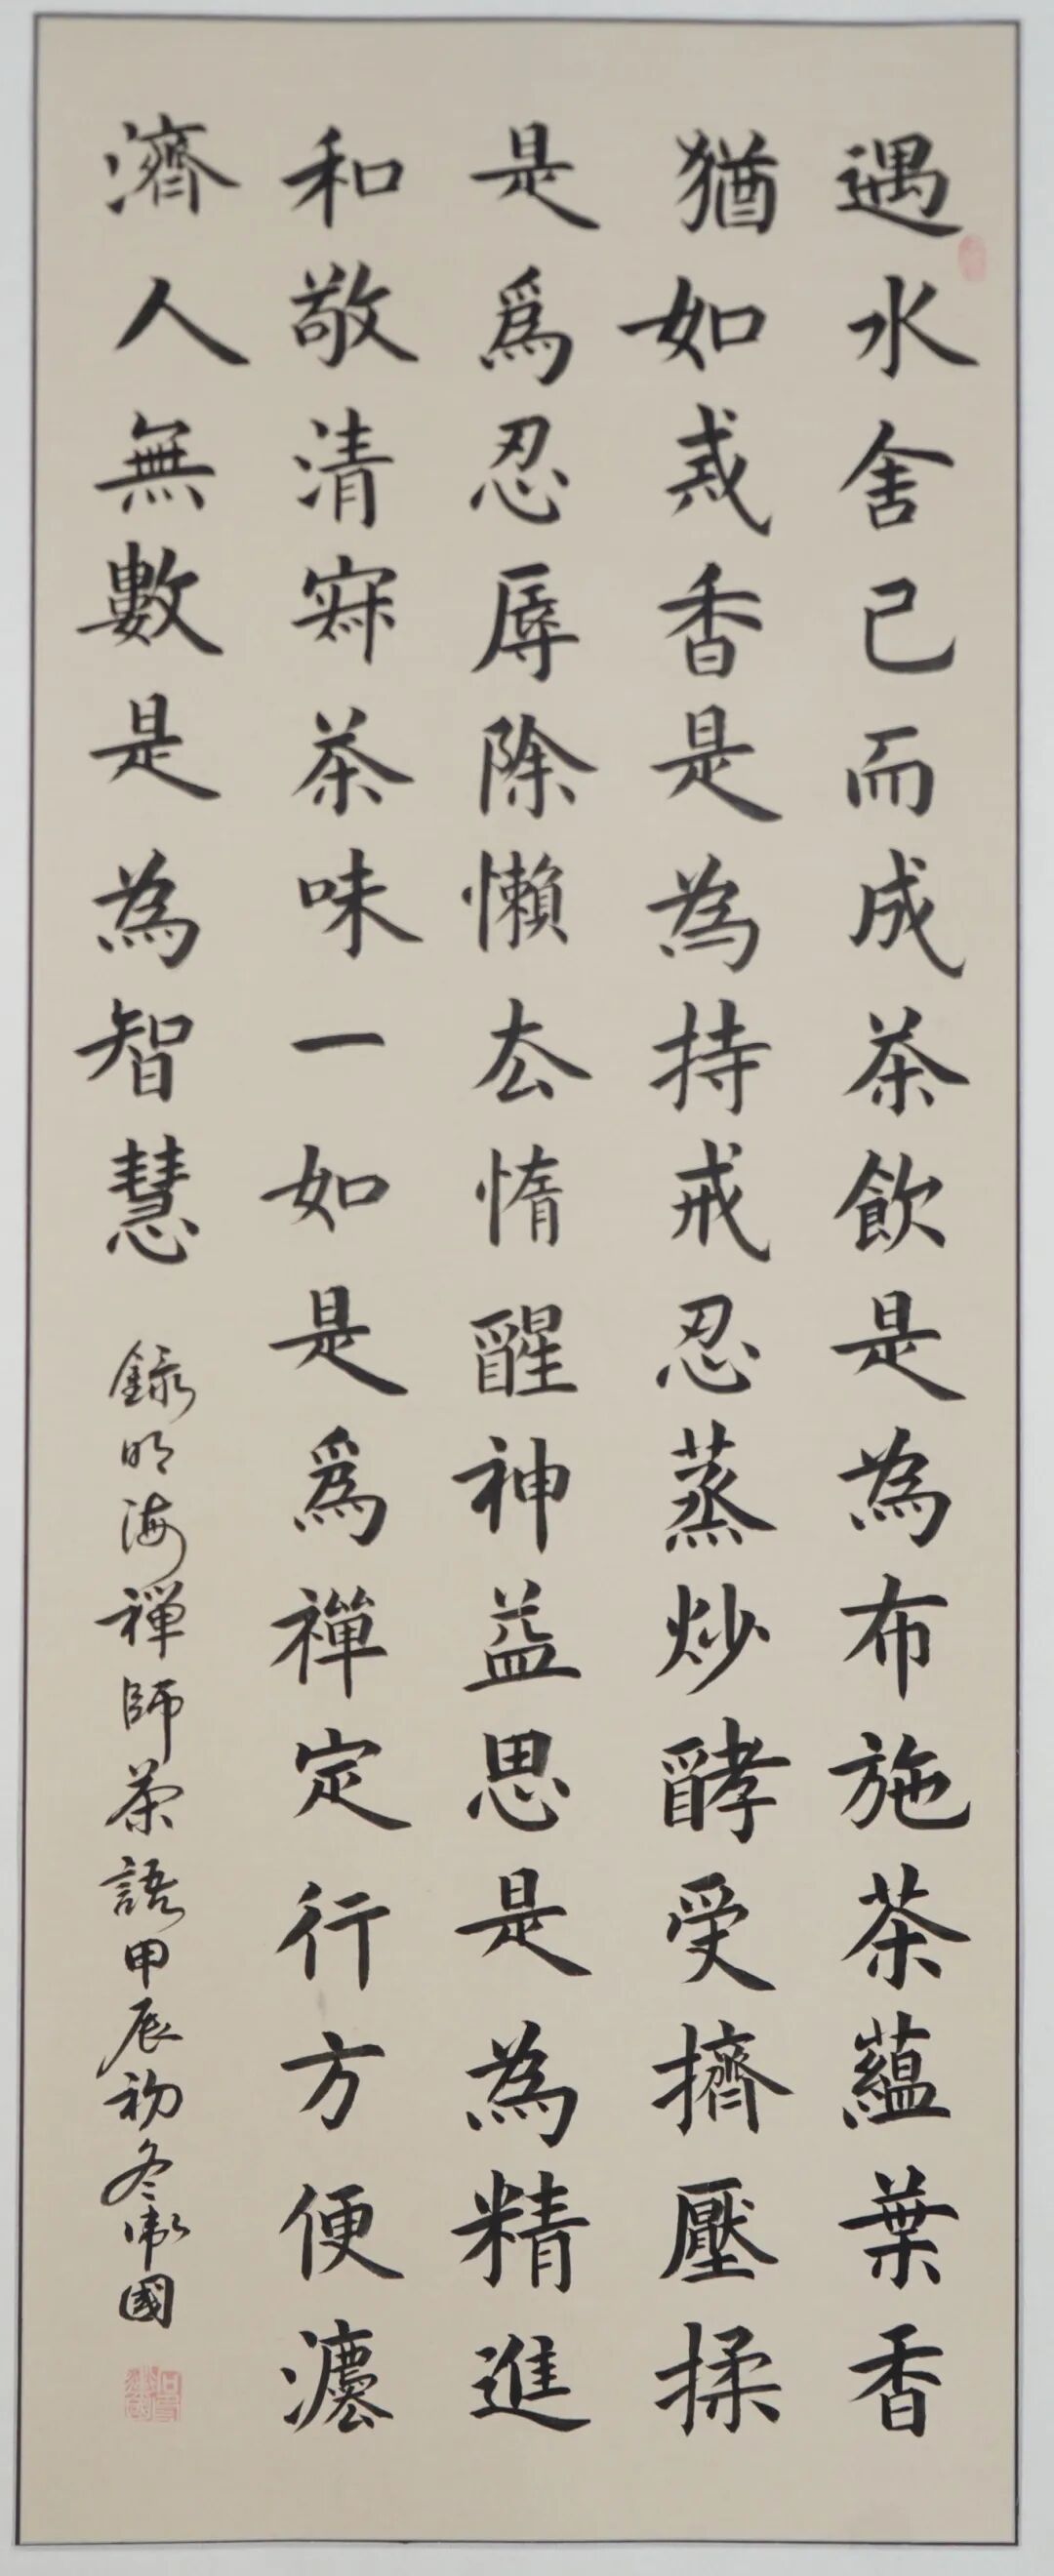 遇水舍己而成茶飲是為布施茶蘊葉香
猶如戒香是為持戒忍蒸炒酵受擠壓揉
是爲忍辱除懶厺惰醒神益思是為精進
和敬清寂茶味一如是爲禪定行方便灋
濟人無數是為智慧 錄明海禪師茶語甲辰初冬衛國